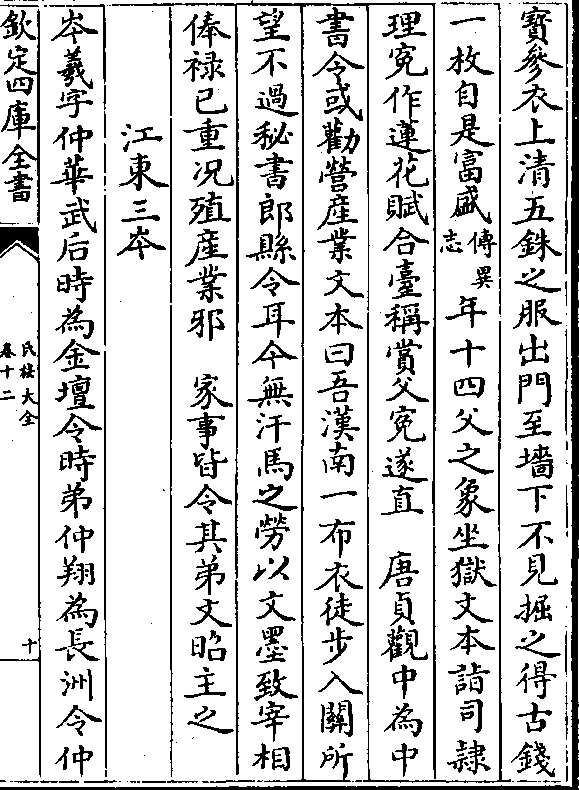 寳參衣上清五銖之服出門至墻下不見掘之得古錢
一枚自是富盛傳異志年十四父之象坐獄文本詣司隷
理寃作蓮花賦合臺稱賞父寃遂直　唐貞觀中為中
書令或勸營産業文本曰吾漢南一布衣徒步入關所
望不過秘書郎縣令耳今無汗馬之勞以文墨致宰相
俸禄已重况殖産業邪　家事皆令其弟文昭主之
江東三岑
岑羲字仲華武后時為金壇令時弟仲翔為長洲令仲
欽定四庫全書
氏族大全
卷十二
十